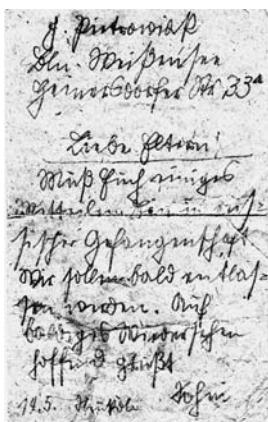 J. Pietrowiak
Bln. Weißensee
Heinersdorfer Str 33a
Liebe Eltern!
Muß Euch einiges
mitteilen. Bin in rus-
sischer Gefangenschaft
Wir sollen bald entlas-
sen werden. Auf
baldiges Wiedersehen
hoffend grüßt
19.5. Neukölln